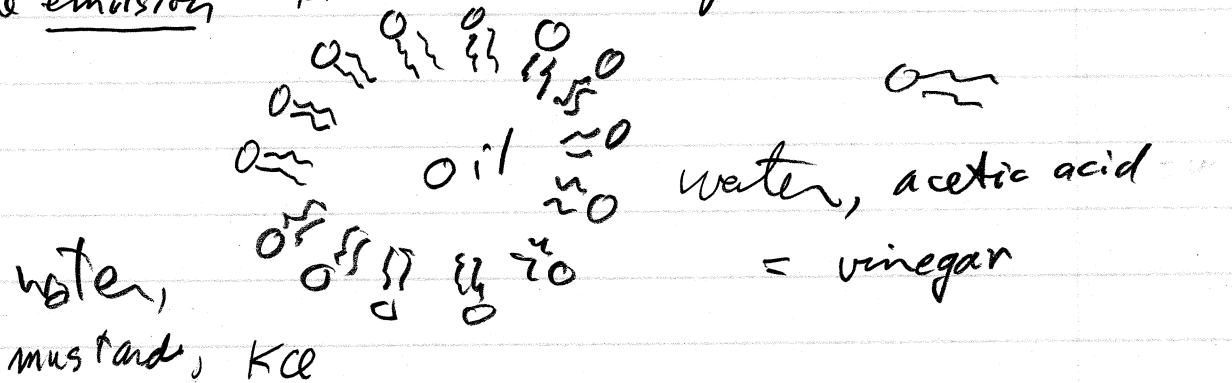 emulsion
Oil
water, acetic acid
= vinegar
water,
mustard, KCl